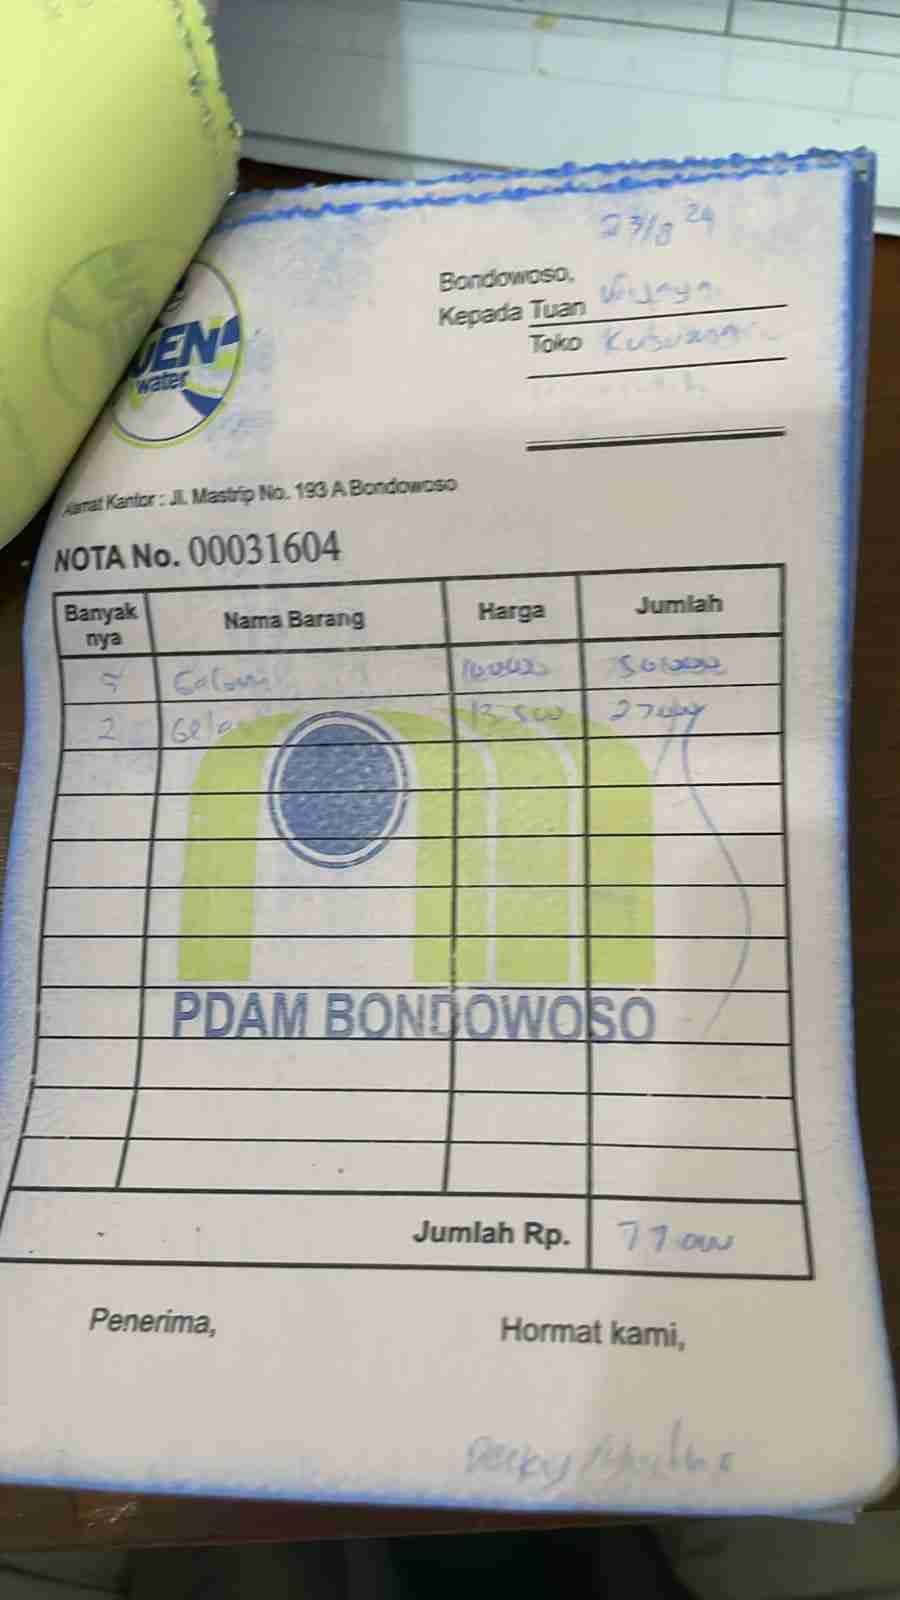 23/8 24
Bondowoso,
Kepada Tuan Wijaya
Toko
GEN
water
Alamat Kantor : Jl. Mastrip No. 193 A Bondowoso
NOTA No. 00031604
Banyak nya Nama Barang Harga Jumlah
5 Galon 10.000 50.000
2 Gelas 13.500 27.000
PDAM BONDOWOSO
Jumlah Rp. 77.000
Penerima, Hormat kami,